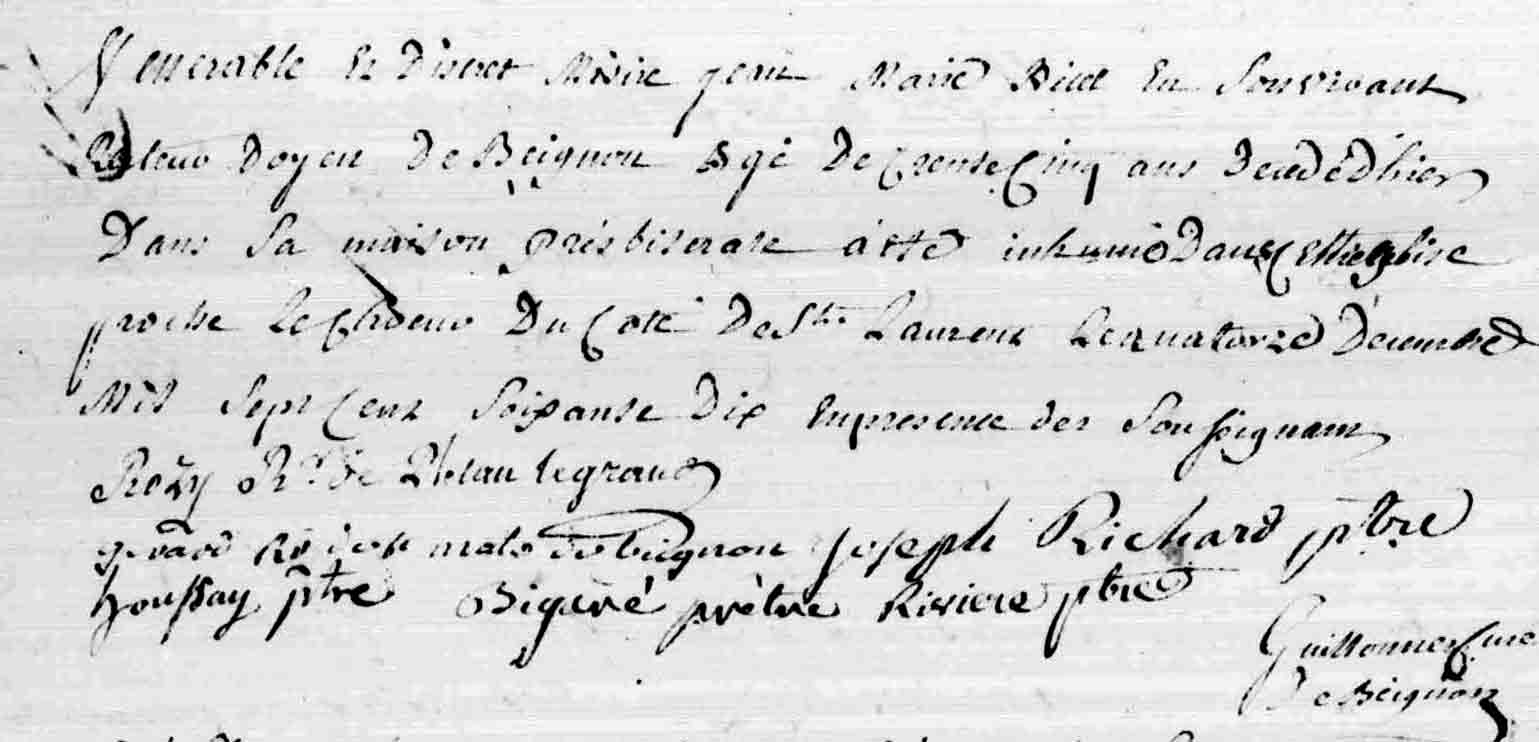 Vennerable Et Discret Missire jean Marie Bilet En Son vivant
Recteur Doyen De Beignon Agé De trente Cinq ans decedé d'hier
Dans Sa maison présbiterale a été inhumé Dans Cette eglise
proche le Choeur Du Coté De St Laurent Le quatorze Décembre
Mil Sept Cent Soixante Dix En presence des Soussignants
Rozy Rr de Plelan le grand
gerard de beignon joseph Richard ptre
houssay ptre Bigaré prètre Riviere ptre
Guillonnier Curé
De Beignon